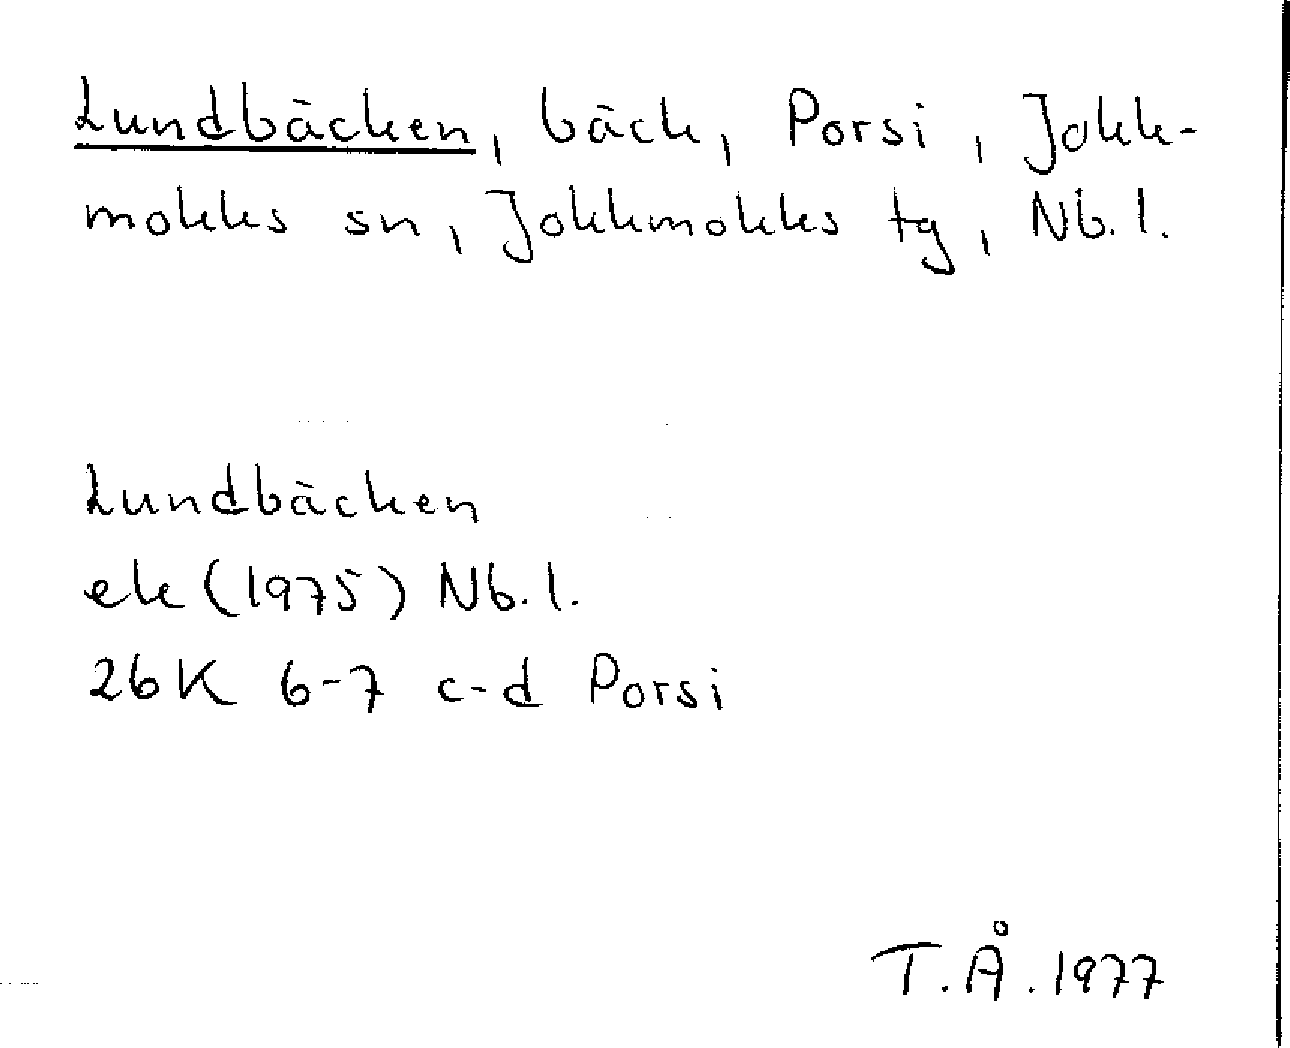 Lundbäcken, bäck, Porsi, Jokk-
mokks sn, Jokkmokks tg, Nb. l.
Lundbäcken
ek (1975) Nb. l.
26K 6-7 c-d Porsi
T.Å. 1977